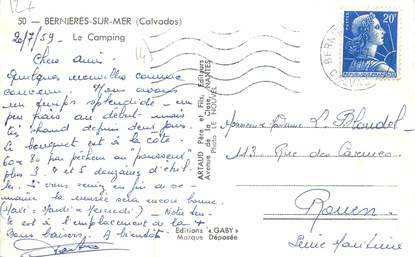 50 — BERNIERES-SUR-MER (Calvados)
20/7/59 Le Camping
Chers Amis.
Quelques nouvelles comme
convenu. Nous avons
un temps splendide - un
peu frais au début - mais
chaud depuis deux jours.
Le bouquet est à la côte.
60 x 80 par pêcheur au "pousseux"
plus 3. 4 et 5 douzaines d'
Si vous venez en fin de se-
maine la marée sera encore bonne.
(Mardi - Mercredi) - Notre ten-
te est à l'emplacement de la
Bons baisers. A bientôt
ARTAUD Père et Fils, Editeurs
Avenue de la Close, NANTES
Photo LE NOUVEL
Editions « GABY »
Marque Déposée
20F
REPUBLIQUE FRANÇAISE
BERN
CALVADOS
Monsieur Madame L. Blondel
113 Rue des Carmes
Rouen
Seine Maritime